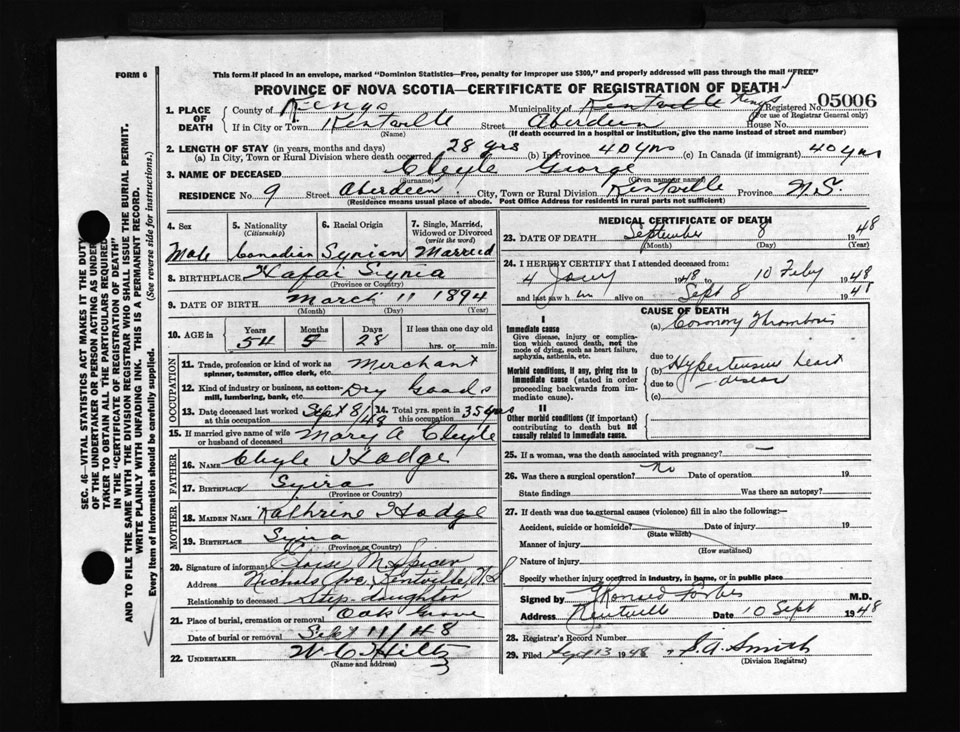 FORM 6
This form if placed in an envelope, marked "Dominion Statistics—Free, penalty for improper use $300," and properly addressed will pass through the mail "FREE"
PROVINCE OF NOVA SCOTIA—CERTIFICATE OF REGISTRATION OF DEATH
1. PLACE OF DEATH County of Kings Municipality of Kentville Kings Registered No. 05006
(For use of Registrar General only)
If in City or Town Kentville Street Aberdeen House No.
(Name) (If death occurred in a hospital or institution, give the name instead of street and number)
2. LENGTH OF STAY (in years, months and days)
(a) In City, Town or Rural Division where death occurred 28 yrs (b) In Province 40 yrs (c) In Canada (if immigrant) 40 yrs
3. NAME OF DECEASED Cleyle George
(Surname) (Given name or names)
RESIDENCE No. 9 Street Aberdeen City, Town or Rural Division Kentville Province N.S.
(Residence means usual place of abode. Post Office Address for residents in rural parts not sufficient)
4. Sex 5. Nationality (Citizenship) 6. Racial Origin 7. Single, Married, Widowed or Divorced (write the word)
Male Canadian Syrian Married
8. BIRTHPLACE Syria
(Province or Country)
9. DATE OF BIRTH March 11 1894
(Month) (Day) (Year)
10. AGE in Years Months Days If less than one day old
54 5 28 hrs. or min.
OCCUPATION
11. Trade, profession or kind of work as spinner, teamster, office clerk, etc. Merchant
12. Kind of industry or business, as cotton-mill, lumbering, bank, etc. Dry Goods
13. Date deceased last worked at this occupation Sept 8/48 14. Total yrs. spent in this occupation 35 yrs
15. If married give name of wife or husband of deceased Mary A Cleyle
FATHER
16. NAME Cleyle Hodge
17. BIRTHPLACE Syria
(Province or Country)
MOTHER
18. MAIDEN NAME Kathrine Hodge
19. BIRTHPLACE Syria
(Province or Country)
20. Signature of informant Eloise M Spicer
Address Nichols Ave. Kentville N.S
Relationship to deceased Step-daughter
21. Place of burial, cremation or removal Oak Grove
Date of burial or removal Sept 11/48
22. UNDERTAKER W. C. Hiltz
(Name and address)
MEDICAL CERTIFICATE OF DEATH
23. DATE OF DEATH September 8 1948
(Month) (Day) (Year)
24. I HEREBY CERTIFY that I attended deceased from:
4 1948 to 10 Feby 1948
and last saw him alive on Sept 8 194
CAUSE OF DEATH
I
Immediate cause
Give disease, injury or complication which caused death, not the mode of dying, such as heart failure, asphyxia, asthenia, etc.
(a) Coronary Thrombosis
due to
Morbid conditions, if any, giving rise to immediate cause (stated in order proceeding backwards from immediate cause).
(b) Hypertensive heart
due to disease
(c)
II
Other morbid conditions (if important) contributing to death but not causally related to immediate cause.
25. If a woman, was the death associated with pregnancy? —
26. Was there a surgical operation? No Date of operation 19
State findings Was there an autopsy?
27. If death was due to external causes (violence) fill in also the following:—
Accident, suicide or homicide? Date of injury 19
(State which)
Manner of injury
(How sustained)
Nature of injury
Specify whether injury occurred in industry, in home, or in public place
Signed by Forbes M.D.
Address Kentville Date 10 Sept 1948
28. Registrar's Record Number
29. Filed Sept 13 1948 S. A. Smith
(Division Registrar)
SEC. 46—VITAL STATISTICS ACT MAKES IT THE DUTY
OF THE UNDERTAKER OR PERSON ACTING AS UNDERTAKER TO OBTAIN ALL THE PARTICULARS REQUIRED
IN THE "CERTIFICATE OF REGISTRATION OF DEATH"
AND TO FILE THE SAME WITH THE DIVISION REGISTRAR WHO SHALL ISSUE THE BURIAL PERMIT.
WRITE PLAINLY WITH UNFADING INK. THIS IS A PERMANENT RECORD.
Every item of information should be carefully supplied. (See reverse side for instructions.)